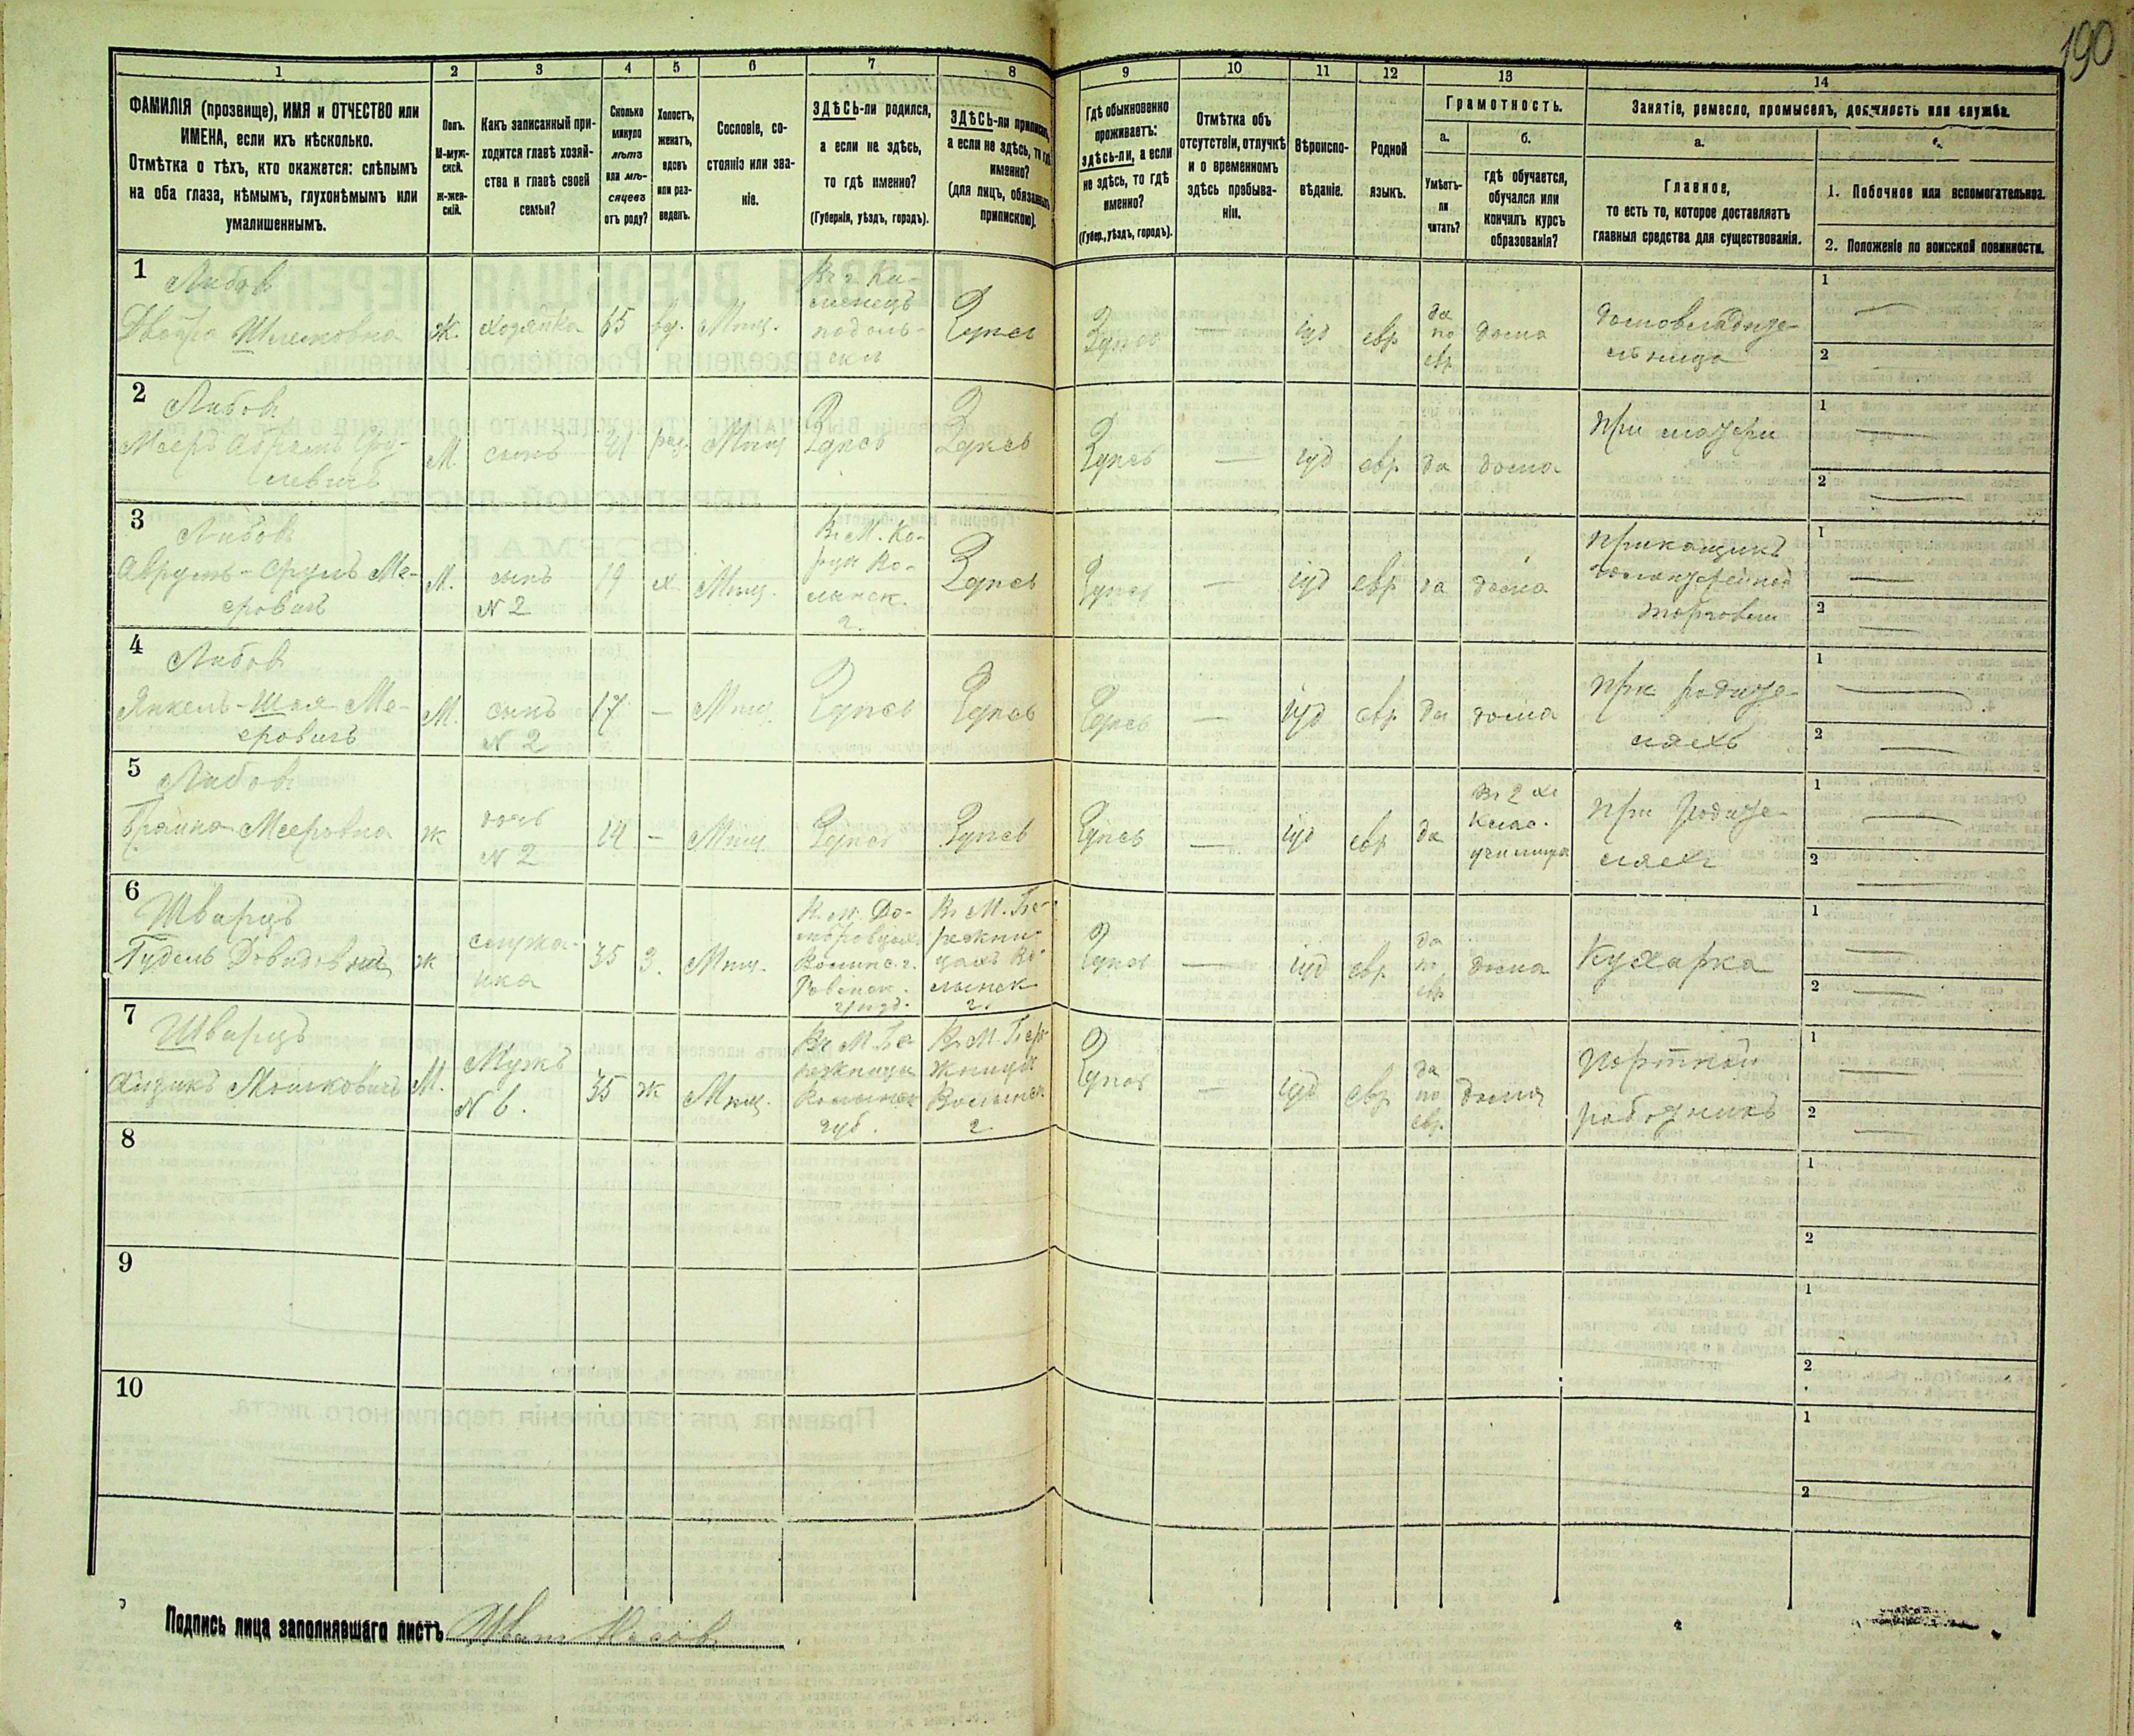 190
1 2 3 4 5 6 7 8 9 10 11 12 13 14
ФАМИЛІЯ (прозвище), ИМЯ и ОТЧЕСТВО или
ИМЕНА, если ихъ нѣсколько.
Отмѣтка о тѣхъ, кто окажется: слѣпымъ
на оба глаза, нѣмымъ, глухонѣмымъ или
умалишеннымъ.
Полъ.
М-муж-
ской.
ж-жен-
скій.
Какъ записанный при-
ходится главѣ хозяй-
ства и главѣ своей
семьи?
Сколько
минуло
лѣтъ
или мѣ-
сяцевъ
отъ роду?
Холостъ,
женатъ,
вдовъ
или раз-
веденъ.
Сословіе, со-
стояніе или зва-
ніе.
ЗДѢСЬ-ли родился,
а если не здѣсь,
то гдѣ именно?
(Губернія, уѣздъ, городъ).
ЗДѢСЬ-ли приписанъ,
а если не здѣсь, то гдѣ
именно?
(для лицъ, обязанныхъ
припискою).
Гдѣ обыкновенно
проживаетъ:
здѣсь-ли, а если
не здѣсь, то гдѣ
именно?
(Губер., уѣздъ, городъ).
Отмѣтка объ
отсутствіи, отлучкѣ
и о временномъ
здѣсь пребыва-
ніи.
Вѣроиспо-
вѣданіе.
Родной
языкъ.
Грамотность.
а.
Умѣетъ-
ли
читать?
б.
гдѣ обучается,
обучался или
кончилъ курсъ
образованія?
Занятіе, ремесло, промыселъ, должность или служба.
а.
Главное,
то есть то, которое доставляетъ
главныя средства для существованія.
1. Побочное или вспомогательное.
2. Положеніе по воинской повинности.
1
Либовъ
Двойра Шлемовна
Ж.
хозяйка
65
вд.
Мѣщ.
Въ г. Ка-
менецъ
подоль-
скъ
Здѣсь
Здѣсь
—
іуд
евр
да
по
евр
дома
домовладѣте-
льница
1 —
2 —
2
Либовъ
Мееръ Абрамъ Сру-
левичъ
М.
сынъ
41
Мѣщ
Здѣсь
Здѣсь
Здѣсь
—
іуд
евр
да
дома
при матери
1 —
2 —
3
Либовъ
Аврумъ-Сруль Ме-
еровичъ
М.
сынъ
N 2
19
х
Мѣщ.
Здѣсь
Здѣсь
—
іуд
евр
да
дома
Прикащикъ
галантерейной
торговли
1 —
2 —
4
Либовъ
Янкель-Шая Ме-
еровичъ
М.
сынъ
N 2
17
—
Мѣщ.
Здѣсь
Здѣсь
Здѣсь
—
іуд
евр
да
дома
при родите-
ляхъ
1 —
2 —
5
Либовъ
Бранна Мееровна
ж
дочь
N 2
14
—
Мѣщ
Здѣсь
Здѣсь
Здѣсь
—
іуд
евр
да
въ 2 хъ
клас.
училища
при родите-
ляхъ
1 —
2 —
6
Шварцъ
Гудель Довидовна
ж
служа-
нка
35
З.
Мѣщ.
Здѣсь
—
іуд
евр
да
по
евр
дома
Кухарка
1 —
2 —
7
Шварцъ
Мошковичъ
М.
Мужъ
N 6.
35
ж
Мѣщ.
Въ М. Бе-
режница
Волынск
губ.
Въ М. Бере-
жница
Волынск
г.
Здѣсь
—
іуд
евр
да
по
евр.
дома
Портной
работникъ
1 —
2 —
8
1
2
9
1
2
10
1
2
Подпись лица заполнявшаго листъ